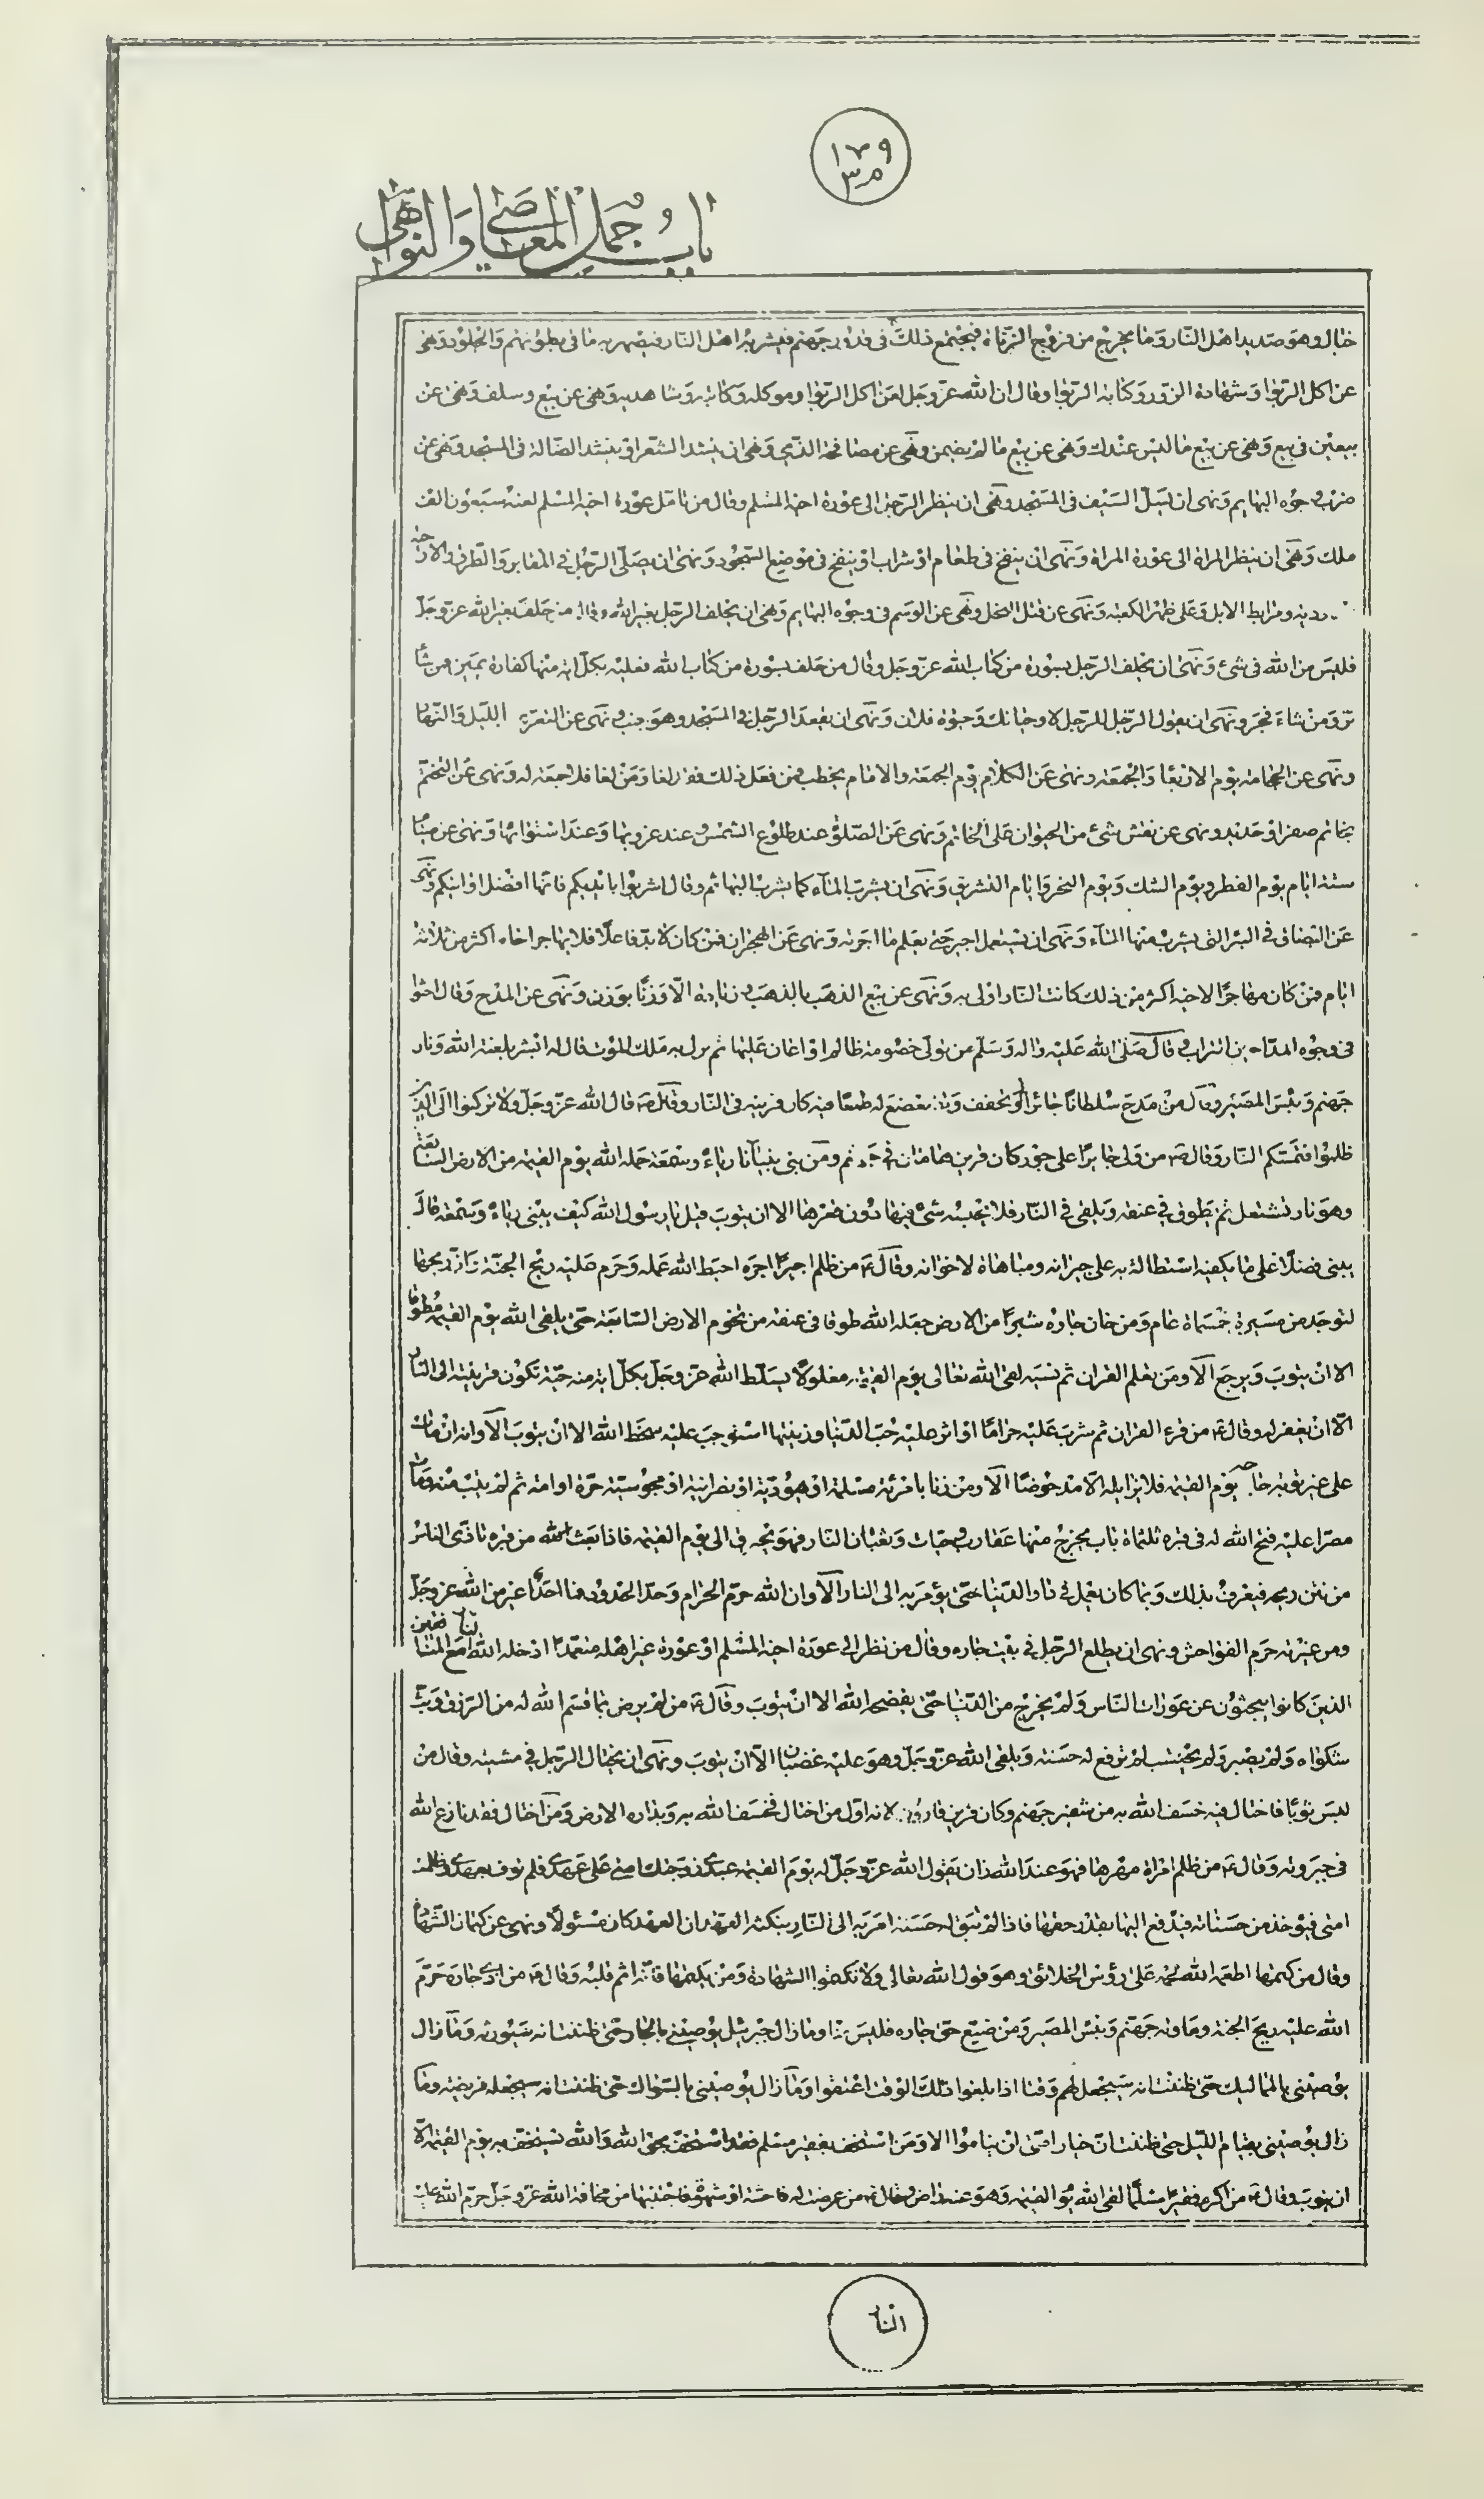 ١٧٩
باب جمل المعاصي والنواهي
خبال وهو صديد اهل النار وما يخرج من فروج الزناة فيجتمع ذلك في قدور جهنم فيشربه اهل النار فيصهر به ما في بطونهم والجلود ونهى
عن اكل الربوا وشهادة الزور وكتابة الربوا وقال ان الله عز وجل لعن اكل الربوا وموكله وكاتبه وشاهديه ونهى عن بيع وسلف ونهى عن
بيعين في بيع ونهى عن بيع ما ليس عندك ونهى عن بيع ما لم يضمن ونهى عن مصافحة الذمي ونهى ان ينشد الشعر او ينشد الضالة في المسجد ونهى عن
ضرب وجوه البهايم ونهى ان يسل السيف في المسجد ونهى ان ينظر الرجل الى عورة اخيه المسلم وقال من تامل عورة اخيه المسلم لعنه سبعون الف
ملك ونهى ان ينظر المراة الى عورة المراة ونهى ان ينفخ في طعام او شراب او ينفخ في موضع السجود ونهى ان يصلى الرجل في المقابر والطرق والارحية
ومرابط الابل وعلى ظهر الكعبة ونهى عن قتل النحل ونهى عن الوسم في وجوه البهايم ونهى ان يحلف الرجل بغير الله وقال من حلف بغير الله عز وجل
فليس من الله في شئ ونهى ان يحلف الرجل بسورة من كتاب الله عز وجل وقال من حلف بسورة من كتاب الله فعليه بكل اية منها كفارة يمين فمن شاء
بر ومن شاء فجر ونهى ان يقول الرجل للرجل لا وحياتك وحيوة فلان ونهى ان يقعد الرجل في المسجد وهو جنب ونهى عن التعري بالليل والنهار
ونهى عن الحجامة يوم الاربعا والجمعة ونهى عن الكلام يوم الجمعة والامام يخطب فمن فعل ذلك فقد لغا ومن لغا فلا جمعة له ونهى عن التختم
بخاتم صفر او حديد ونهى عن نقش شئ من الحيوان على الخاتم ونهى عن الصلوة عند طلوع الشمس وعند غروبها وعند استوائها ونهى عن صيام
ستة ايام يوم الفطر ويوم الشك ويوم النحر وايام التشريق ونهى ان يشرب المآء كما يشرب البهائم وقال اشربوا بايديكم فانها افضل اوانيكم ونهى
عن البصاق في البئر التي يشرب منها المآء ونهى ان يستعمل اجير حتى يعلم ما اجرته ونهى عن الهجران فمن كان لا بد فاعلا فلا يهاجر اخاه اكثر من ثلاثة
ايام فمن كان مهاجرا لاخيه اكثر من ذلك كانت النار اولى به ونهى عن بيع الذهب بالذهب زيادة الا وزنا بوزن ونهى عن المدح وقال احثوا
في وجوه المداحين التراب وقال صلى الله عليه واله وسلم من تولى خصومة ظالم او اعان عليها ثم نزل به ملك الموت قال له ابشر بلعنة الله ونار
جهنم وبئس المصير وقال من مدح سلطانا جائرا او تخفف وتضعضع له طمعا فيه كان قرينه في النار وقال ص قال الله عز وجل ولا تركنوا الى الذين
ظلموا فتمسكم النار وقال ص من ولى جايرا على جور كان قرين هامان في جهنم ومن بنى بنيانا رياء وسمعة حمله الله يوم القيمة من الارض السابعة
وهو نار تشتعل ثم يطوق في عنقه ويلقى في النار فلا يحبسه شئ فيها دون قعرها الا ان يتوب قيل يا رسول الله كيف يبنى رياء وسمعة قال
يبنى فضلا على ما يكفيه استطالة به على جيرانه ومباهاة لاخوانه وقال ع من ظلم اجيرا اجره احبط الله عمله وحرم عليه ريح الجنة وان ريحها
لتوجد من مسيرة خمسماة عام ومن خان جاره شبرا من الارض جعله الله طوقا في عنقه من تخوم الارض السابعة حتى يلقى الله يوم القيمة مطوقا
الا ان يتوب ويرجع الا ومن تعلم القران ثم نسيه لقى الله تعالى يوم القيمة مغلولا يسلط الله عز وجل بكل اية منه حية تكون قرينته الى النار
الا ان يغفر له وقال ع من قرء القران ثم شرب عليه حراما او اثر عليه حب الدنيا وزينتها استوجب عليه سخط الله الا ان يتوب الا وانه ان مات
على غير توبة حاجه يوم القيمة فلا يزايله الا مدحوضا الا ومن زنا بامرئة مسلمة او يهودية او نصرانية او مجوسية حرة او امة ثم لم يتب منه ومات
مصرا عليه فتح الله له في قبره ثلثماة باب يخرج منها عقارب وحيات وثعبان النار فهو يحترق الى يوم القيمة فاذا بعث الله من قبره تاذى الناس
من نتن ريحه فيعرف بذلك وبما كان يعمل في دار الدنيا حتى يؤمر به الى النار الا وان الله حرم الحرام وحد الحدود فما احد اغير من الله عز وجل
ومن غيرته حرم الفواحش ونهى ان يطلع الرجل في بيت جاره وقال من نظر الى عورة اخيه المسلم او عورة غير اهله متعمدا ادخله الله مع المنافقين
الذين كانوا يبحثون عن عورات الناس ولم يخرج من الدنيا حتى يفضحه الله الا ان يتوب وقال ع من لم يرض بما قسم الله له من الرزق وبث
شكواه ولم يصبر ولم يحتسب لم ترفع له حسنة ويلقى الله عز وجل وهو عليه غضبان الا ان يتوب ونهى ان يختال الرجل في مشيته وقال من
لبس ثوبا فاختال فيه خسف الله به من شفير جهنم وكان قرين قارون لانه اول من اختال فخسف الله به وبداره الارض ومن اختال فقد نازع الله
في جبروته وقال ع من ظلم امراة مهرها فهو عند الله زان يقول الله عز وجل له يوم القيمة عبدى زوجتك امتى على عهدى فلم توف بعهدى وظلمت
امتى فيؤخذ من حسناته فيدفع اليها بقدر حقها فاذا لم تبق له حسنة امر به الى النار بنكثه العهد ان العهد كان مسئولا ونهى عن كتمان الشهادة
وقال من كتمها اطعمه الله لحمه على رؤس الخلائق وهو قول الله تعالى ولا تكتموا الشهادة ومن يكتمها فانه اثم قلبه وقال ع من اذى جاره حرم
الله عليه ريح الجنة وماويه جهنم وبئس المصير ومن ضيع حق جاره فليس منا وما زال جبرئيل يوصيني بالجار حتى ظننت انه سيورثه وما زال
يوصيني بالمماليك حتى ظننت انه سيجعل لهم وقتا اذا بلغوا ذلك الوقت اعتقوا وما زال يوصيني بالسواك حتى ظننت انه سيجعله فريضة وما
زال يوصيني بقيام الليل حتى ظننت ان خيار امتى ان يناموا الا ومن استخف بفقير مسلم فقد استخف بحق الله والله يستخف به يوم القيمة الا
ان يتوب وقال ع من اكرم فقيرا مسلما لقى الله يوم القيمة وهو عنه راض وقال ع من عرضت له فاحشة او شهوة فاجتنبها من مخافة الله عز وجل حرم الله عليه
النار